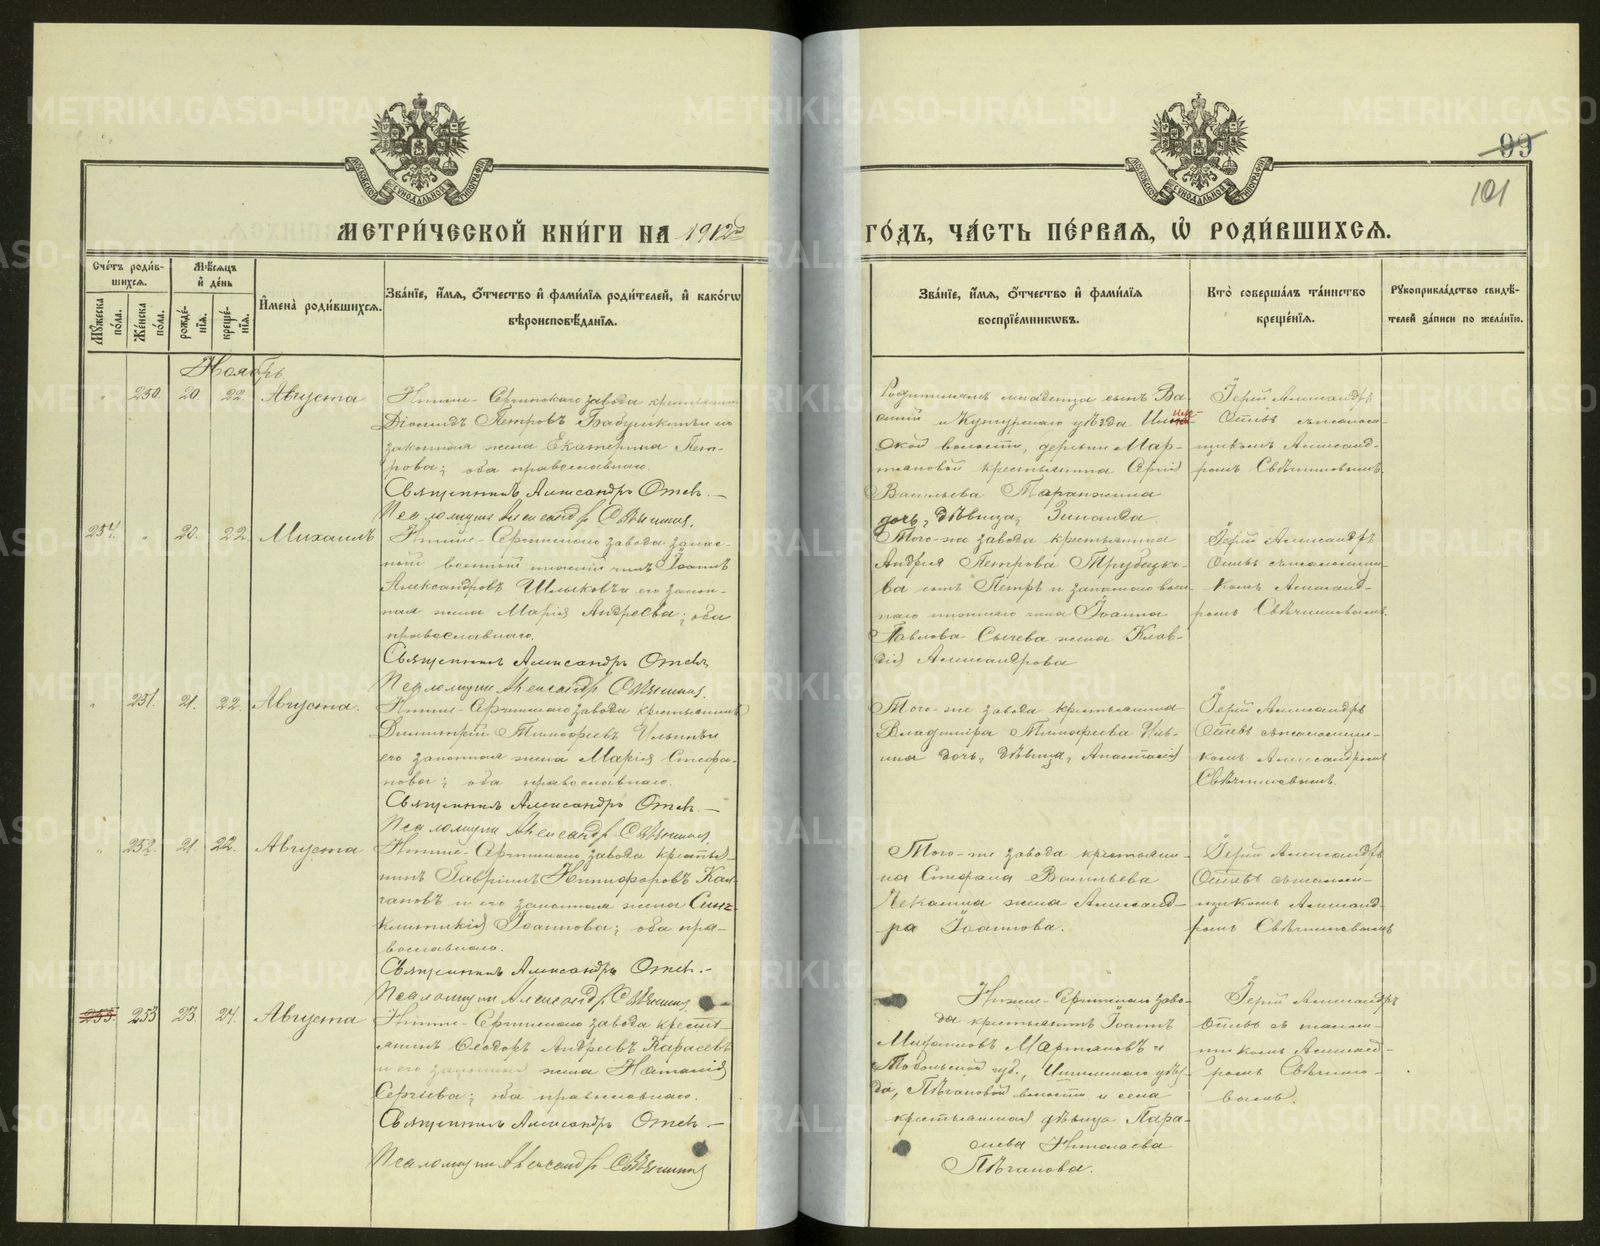 99
101
МЕТРИ́ЧЕСКОЙ КНИ́ГИ НА 1912й ГО́ДЪ, ЧА́СТЬ ПЕ́РВАЯ, Ѡ҆ РОДИ́ВШИХСЯ.
Сче́тъ роди́в-
шихся.
Му́жеска
по́ла.
Же́нска
по́ла.
Мѣ́сяцъ
и҆ де́нь
рожде́-
нія.
креще́-
нія.
И҆мена̀ роди́вшихся.
Зва́ніе, и҆́мя, ѻ҆́тчество и҆ фами́лія роди́телей, и҆ како́гѡ
вѣроисповѣ́данія.
Зва́ніе, и҆́мя, ѻ҆́тчество и҆ фами́лія
воспріе́мникѡвъ.
Кто̀ соверша́лъ та́инство
креще́нія.
Рукоприкла́дство свидѣ́-
телей за́писи по жела́нію.
Ноябрь
250. 20. 22. Августа
Нижне-Сергинскаго завода крестьянинъ
Діомидъ Петровъ Бабушкинъ и
законная жена Екатерина Пет-
рова; оба православнаго.
Священникъ Александръ Отевъ.
Псаломщикъ Александръ Свѣчниковъ.
Родителямъ младенца сынъ Ва-
силій и Кунгурскаго уѣзда
ской волости, деревни Мар-
тяновой крестьянина
Васильева
дочь, дѣвица, Зинаида.
Іерей Александръ
Отевъ съ псалом-
щикомъ Александ-
ромъ Свѣчниковымъ.
254. 20. 22. Михаилъ
Нижне-Сергинскаго завода запас-
ной военный нижній чинъ Іоаннъ
Александровъ Шлыковъ и его закон-
ная жена Марія Андреева; оба
православнаго.
Священникъ Александръ Отевъ
Псаломщикъ Александръ Свѣчниковъ.
Того-же завода крестьянина
Андрея Петрова Трубецко-
ва сынъ Петръ и запаснаго воен-
наго нижняго чина Іоанна
Павлова Сычева жена Клав-
дія Александрова
Іерей Александръ
Отевъ съ псаломщи-
комъ Александ-
ромъ Свѣчниковымъ.
251. 21. 22. Августа.
Нижне-Сергинскаго завода крестьянинъ
Димитрій Тимофеевъ Ильинъ и
его законная жена Марія Стефа-
нова; оба православнаго.
Священникъ Александръ Отевъ.
Псаломщикъ Александръ Свѣчниковъ.
Того-же завода крестьянина
Владиміра Тимофеева Иль-
ина дочь, дѣвица, Анастасія
Іерей Александръ
Отевъ съ псаломщи-
комъ Александромъ
Свѣчниковымъ.
252. 21. 22. Августа
Нижне-Сергинскаго завода крестья-
нинъ Гавріилъ Никифоровъ Кол-
гановъ и его законная жена Синк-
клитикія Іоаннова; оба пра-
вославнаго.
Священникъ Александръ Отевъ.
Псаломщикъ Александръ Свѣчниковъ
Того-же завода крестьяни-
на Стефана Васильева
Чекасина жена Александ-
ра Іоаннова.
Іерей Александръ
Отевъ съ псалом-
щикомъ Александ-
ромъ Свѣчниковымъ
253. 253 23. 24. Августа
Нижне-Сергинскаго завода кресть-
янинъ Ѳеодоръ Андреевъ Карасевъ
и его законная жена Наталія
Сергіева; оба православнаго.
Священникъ Александръ Отевъ
Псаломщикъ Александръ Свѣчниковъ
Нижне-Сергинскаго заво-
да крестьянинъ Іоаннъ
Михаиловъ Мартяновъ и
Тобольской губ., Ишимскаго уѣз-
да, Пѣгановой волости и села
крестьянская дѣвица Пара-
скева Николаева
Пѣганова.
Іерей Александръ
Отевъ съ псалом-
щикомъ Александ-
ромъ Свѣчнико-
вымъ.
METRIKI.GASO-URAL.RU